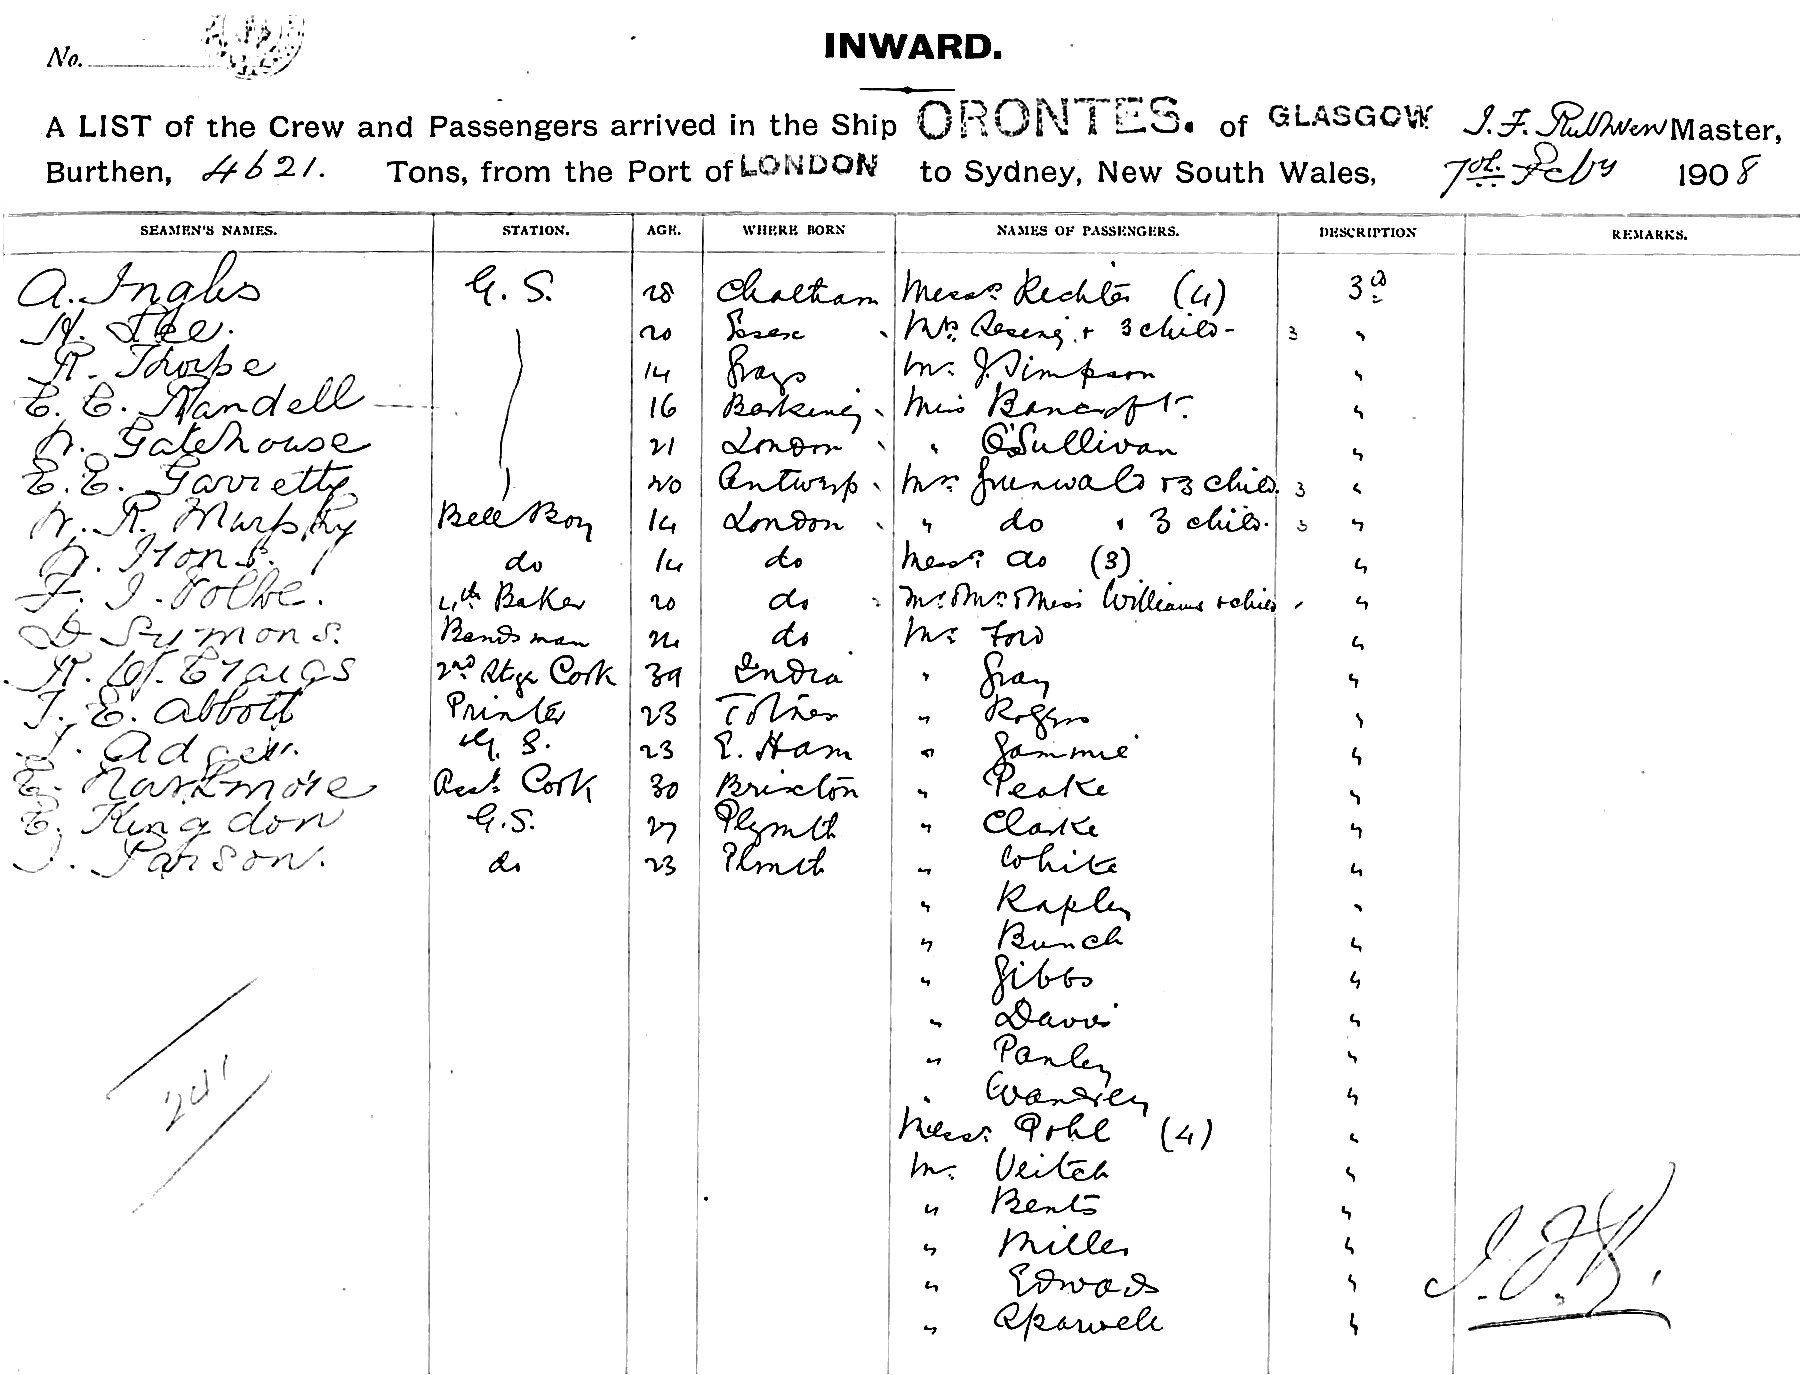 No.
INWARD.
A LIST of the Crew and Passengers arrived in the Ship ORONTES. of GLASGOW J. F. Ruthven Master,
Burthen, 4621. Tons, from the Port of LONDON to Sydney, New South Wales, 7th Feby 1908
SEAMEN'S NAMES. STATION. AGE. WHERE BORN NAMES OF PASSENGERS. DESCRIPTION REMARKS.
A. Ingles G. S. 28 Chatham Messrs Richter (4) 3rd
H. Lee. 20 Essex Mrs & 3 child- 3 "
R. Thorpe 14 Grays Mr. J. Simpson "
E. E. Randell 16 Barking Miss Bancroft "
W. Gatehouse 21 London " O'Sullivan "
E. E. Garretty 20 Antwerp Mr. Grunwald & 3 child. 3 "
W. R. Murphy Bell Boy 14 London " do & 3 child. 3 "
Irons. do 14 do Messrs do (3) "
F. J. 4th Baker 20 do Mr. & Mrs. & Miss Williams & child "
D Symons. Bandsman 24 do Mr. Ford "
R. Craigs 2nd Stge Cook 39 India " Gray "
J. E. Abbott Printer 23 Totnes " Rogers "
J. Adger. G. S. 23 E. Ham " Gammie "
E. Narkmore Asst. Cook 30 Brixton " Peake "
E. Kingdon G. S. 27 Plymth " Clarke "
J. Parson. do 23 Plmth " White "
" Rapley "
" Bunch "
" Gibbs "
" Davis "
" Panley "
" "
Messrs. Pohl (4) "
Mr. Veitch "
" Bents "
" Miller "
" Edwards "
" Sparwell "
241
J. F. R.